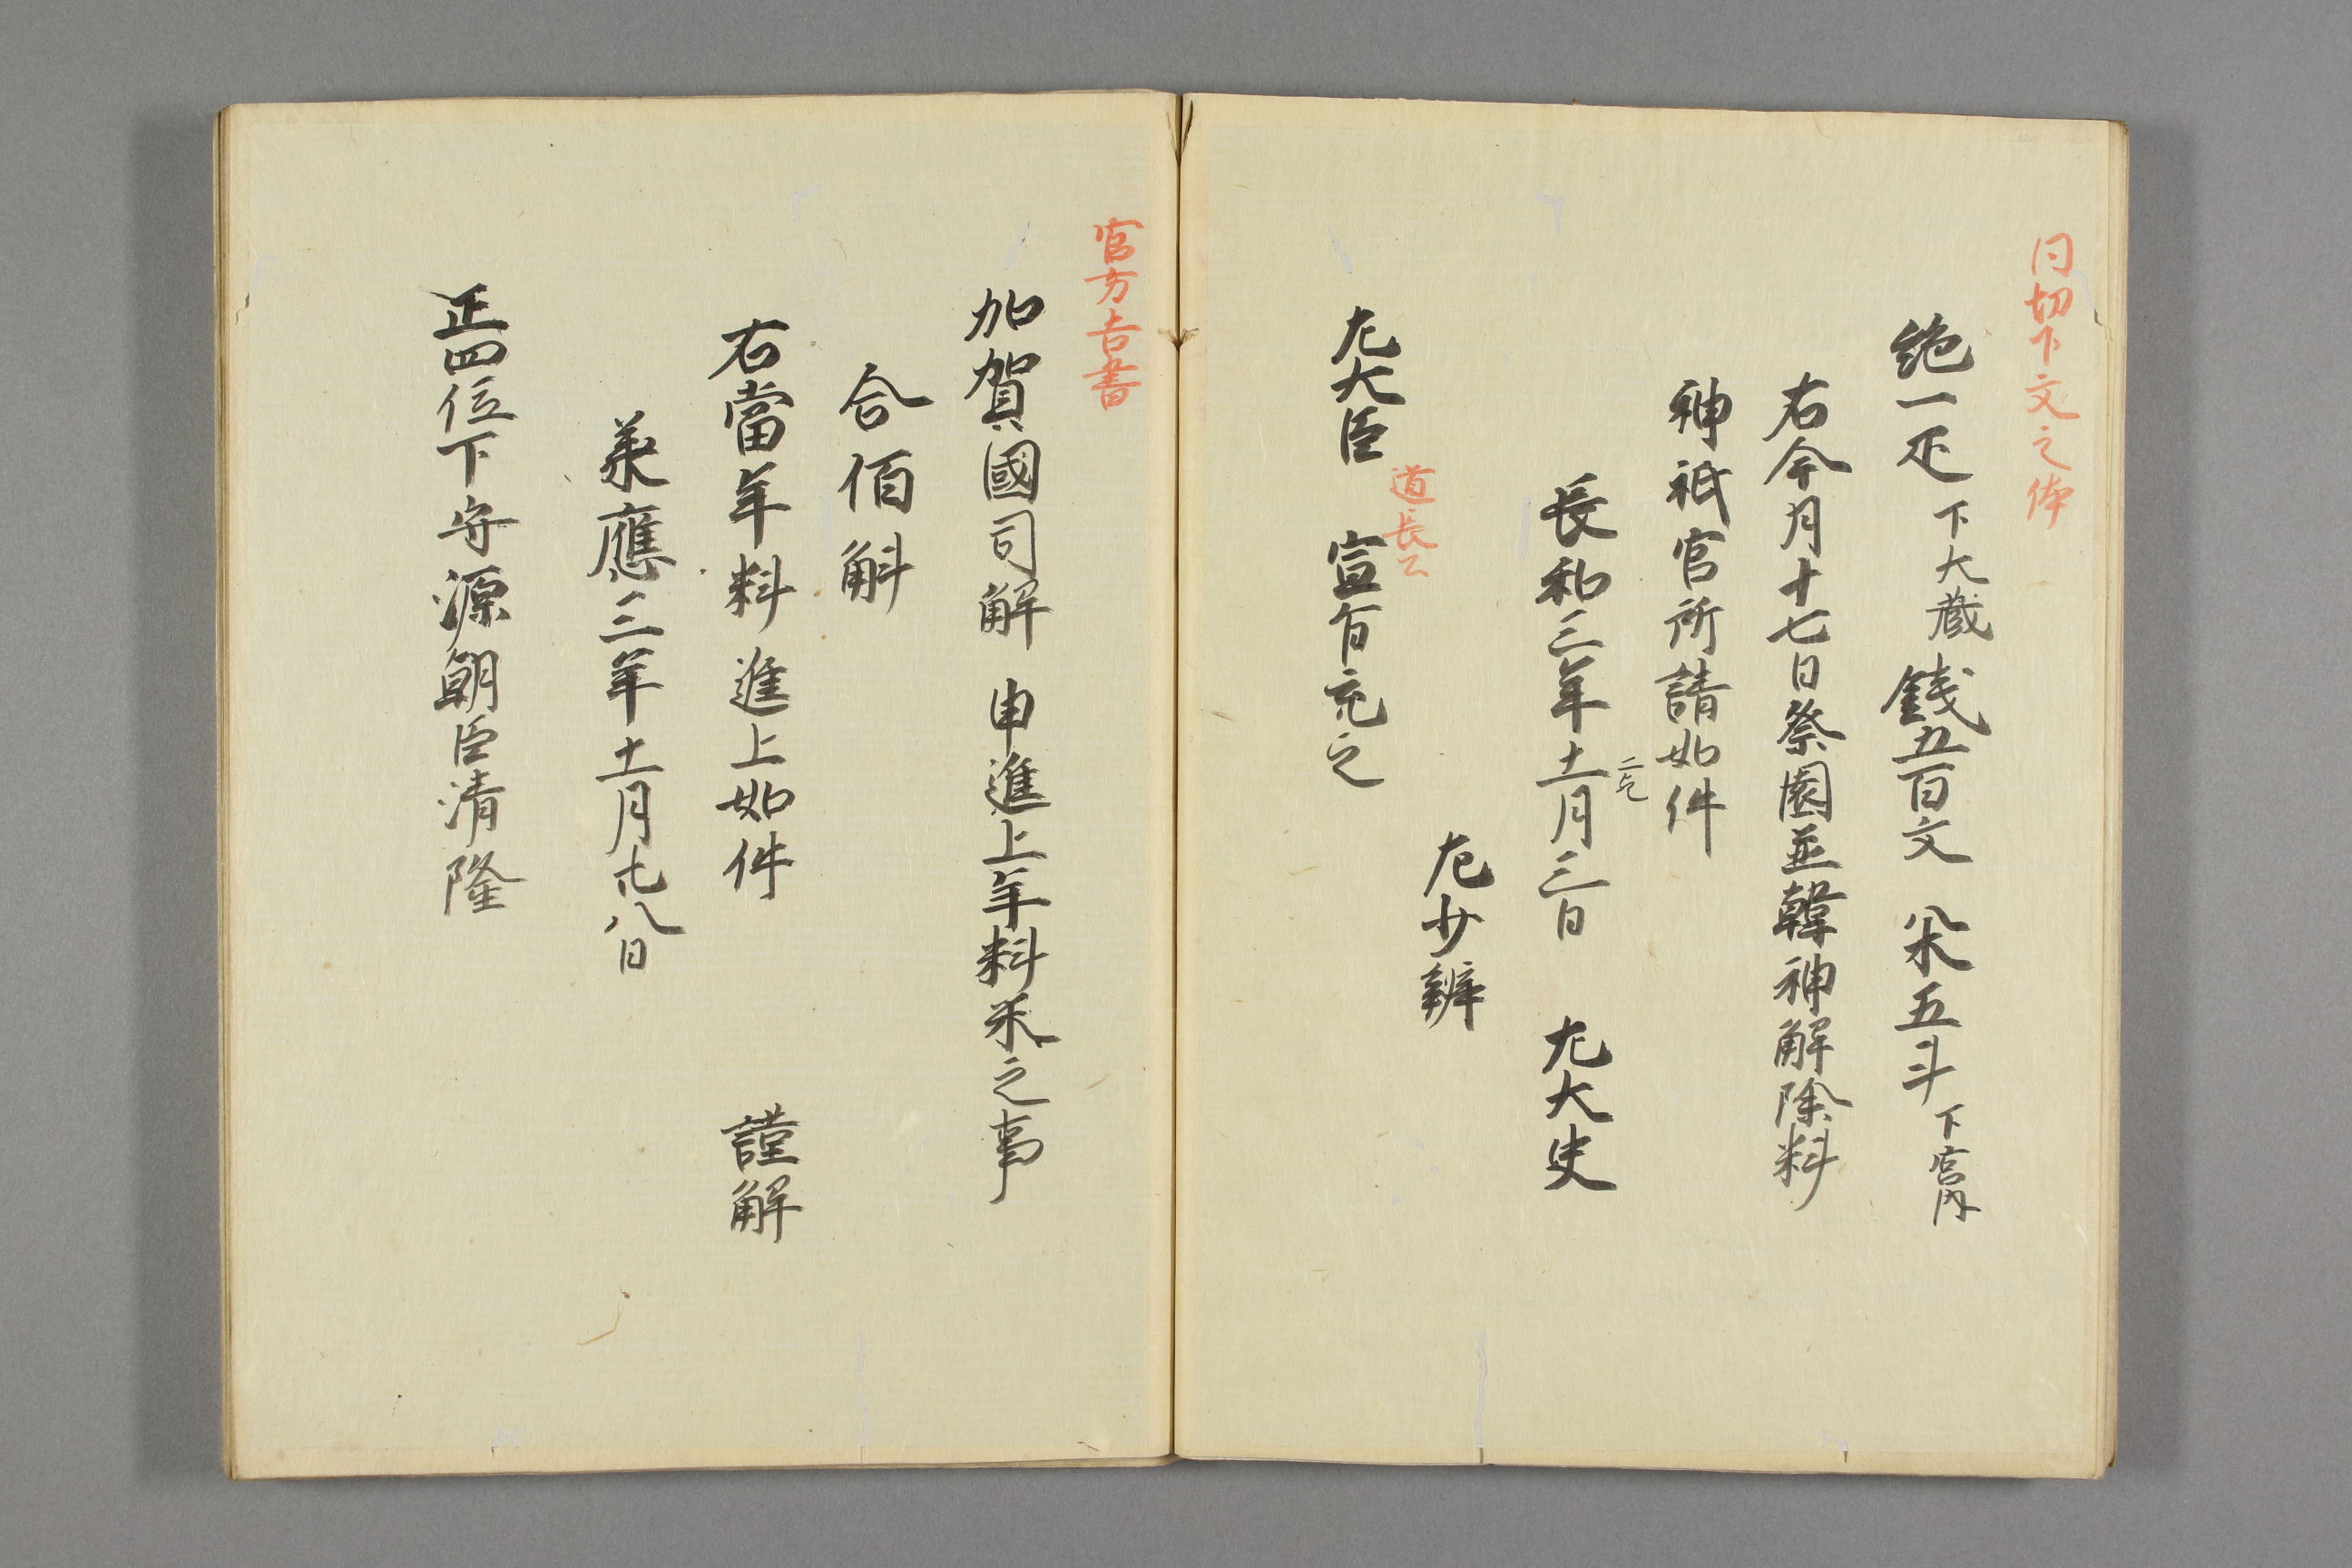 同切下文之体
絁一疋 下大蔵 銭五百文 米五斗 下宮内
右今月十七日祭園並韓神解除料
神祇官所請如件
二乞
長和三年十一月三日 左大史
左少辨
道長公
左大臣 宣旨充之
官方吉書
加賀國司解 申進上年料米之事
合佰斛
右當年料進上如件 謹解
承應三年十一月廿八日
正四位下守源朝臣清隆